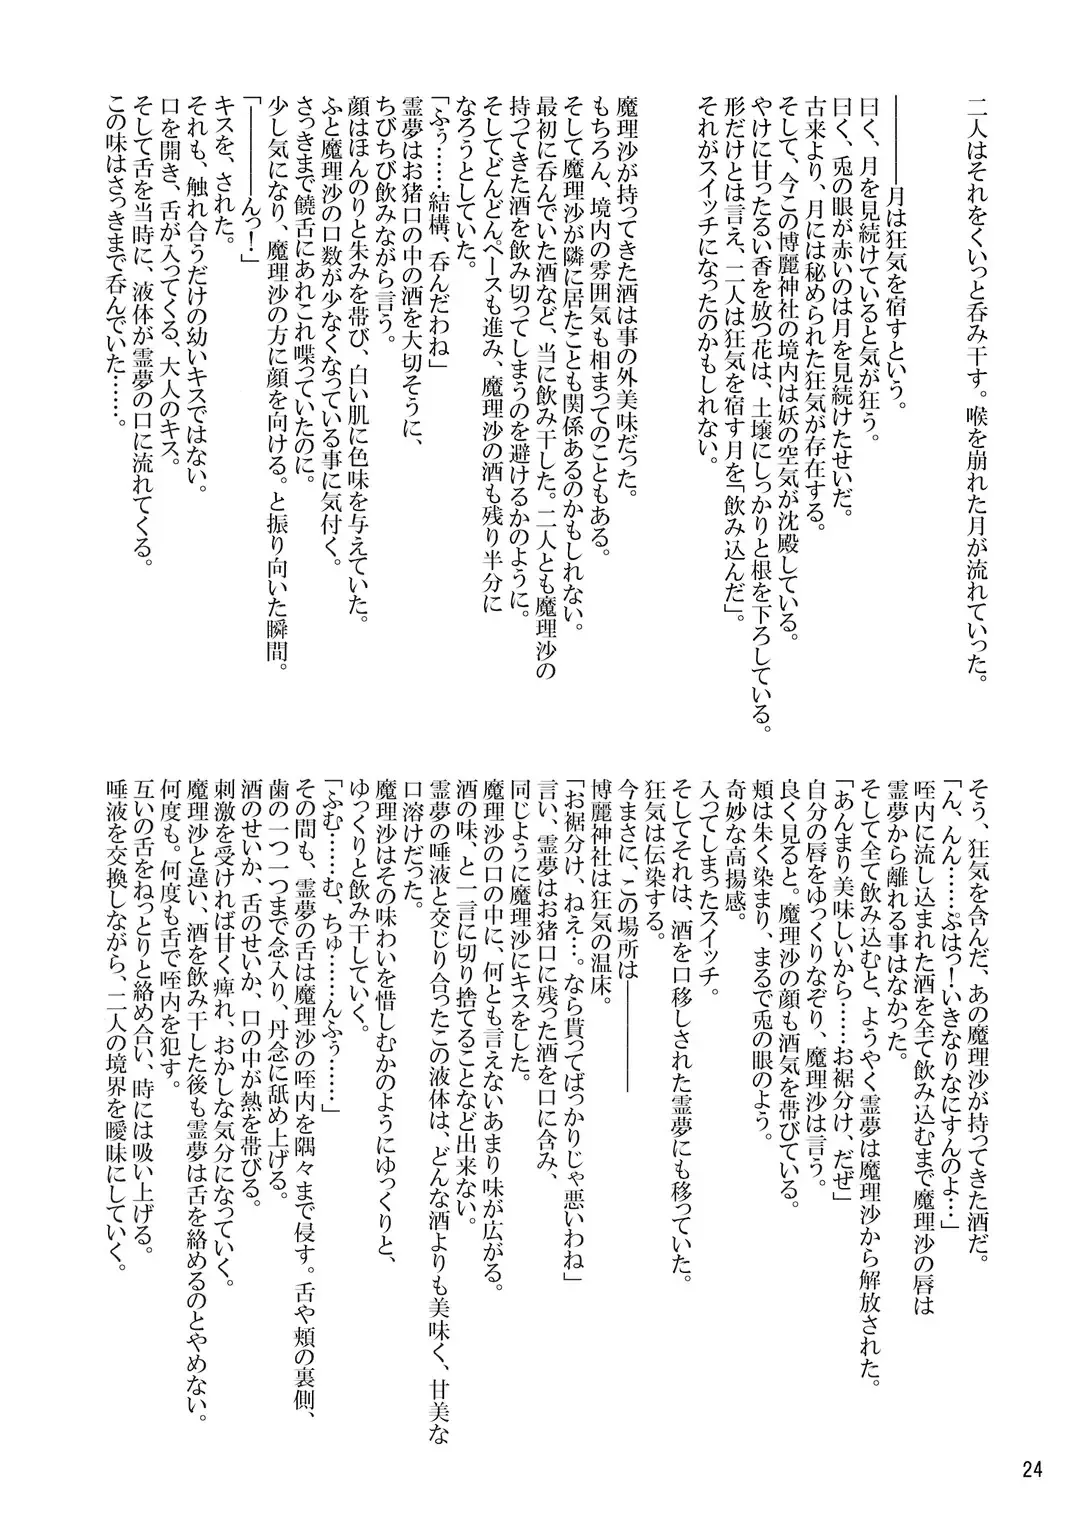 二人はそれをくいっと呑み干す。喉を崩れた月が流れていった。
――――月は狂気を宿すという。
曰く、月を見続けていると気が狂う。
曰く、兎の眼が赤いのは月を見続けたせいだ。
古来より、月には秘められた狂気が存在する。
そして、今この博麗神社の境内は妖の空気が沈殿している。
やけに甘ったるい香を放つ花は、土壌にしっかりと根を下ろしている。
形だけとは言え、二人は狂気を宿す月を「飲み込んだ」。
それがスイッチになったのかもしれない。
魔理沙が持ってきた酒は事の外美味だった。
もちろん、境内の雰囲気も相まってのこともある。
そして魔理沙が隣に居たことも関係あるのかもしれない。
最初に呑んでいた酒など、当に飲み干した。二人とも魔理沙の
持ってきた酒を飲み切ってしまうのを避けるかのように。
そしてどんどんペースも進み、魔理沙の酒も残り半分に
なろうとしていた。
「ふぅ……結構、呑んだわね」
霊夢はお猪口の中の酒を大切そうに、
ちびちび飲みながら言う。
顔はほんのりと朱みを帯び、白い肌に色味を与えていた。
ふと魔理沙の口数が少なくなっている事に気付く。
さっきまで饒舌にあれこれ喋っていたのに。
少し気になり、魔理沙の方に顔を向ける。と振り向いた瞬間。
「――――んっ！」
キスを、された。
それも、触れ合うだけの幼いキスではない。
口を開き、舌が入ってくる、大人のキス。
そして舌を当時に、液体が霊夢の口に流れてくる。
この味はさっきまで呑んでいた……。
そう、狂気を含んだ、あの魔理沙が持ってきた酒だ。
「ん、んん……ぷはっ！いきなりなにすんのよ…」
咥内に流し込まれた酒を全て飲み込むまで魔理沙の唇は
霊夢から離れる事はなかった。
そして全て飲み込むと、ようやく霊夢は魔理沙から解放された。
「あんまり美味しいから……お裾分け、だぜ」
自分の唇をゆっくりなぞり、魔理沙は言う。
良く見ると。魔理沙の顔も酒気を帯びている。
頬は朱く染まり、まるで兎の眼のよう。
奇妙な高揚感。
入ってしまったスイッチ。
そしてそれは、酒を口移しされた霊夢にも移っていた。
狂気は伝染する。
今まさに、この場所は――――
博麗神社は狂気の温床。
「お裾分け、ねえ…。なら貰ってばっかりじゃ悪いわね」
言い、霊夢はお猪口に残った酒を口に含み、
同じように魔理沙にキスをした。
魔理沙の口の中に、何とも言えないあまり味が広がる。
酒の味、と一言に切り捨てることなど出来ない。
霊夢の唾液と交じり合ったこの液体は、どんな酒よりも美味く、甘美な
口溶けだった。
魔理沙はその味わいを惜しむかのようにゆっくりと、
ゆっくりと飲み干していく。
「ふむ……む、ちゅ……んふぅ……」
その間も、霊夢の舌は魔理沙の咥内を隅々まで侵す。舌や頬の裏側、
歯の一つ一つまで念入り、丹念に舐め上げる。
酒のせいか、舌のせいか、口の中が熱を帯びる。
刺激を受ければ甘く痺れ、おかしな気分になっていく。
魔理沙と違い、酒を飲み干した後も霊夢は舌を絡めるのとやめない。
何度も。何度も舌で咥内を犯す。
互いの舌をねっとりと絡め合い、時には吸い上げる。
唾液を交換しながら、二人の境界を曖昧にしていく。
24